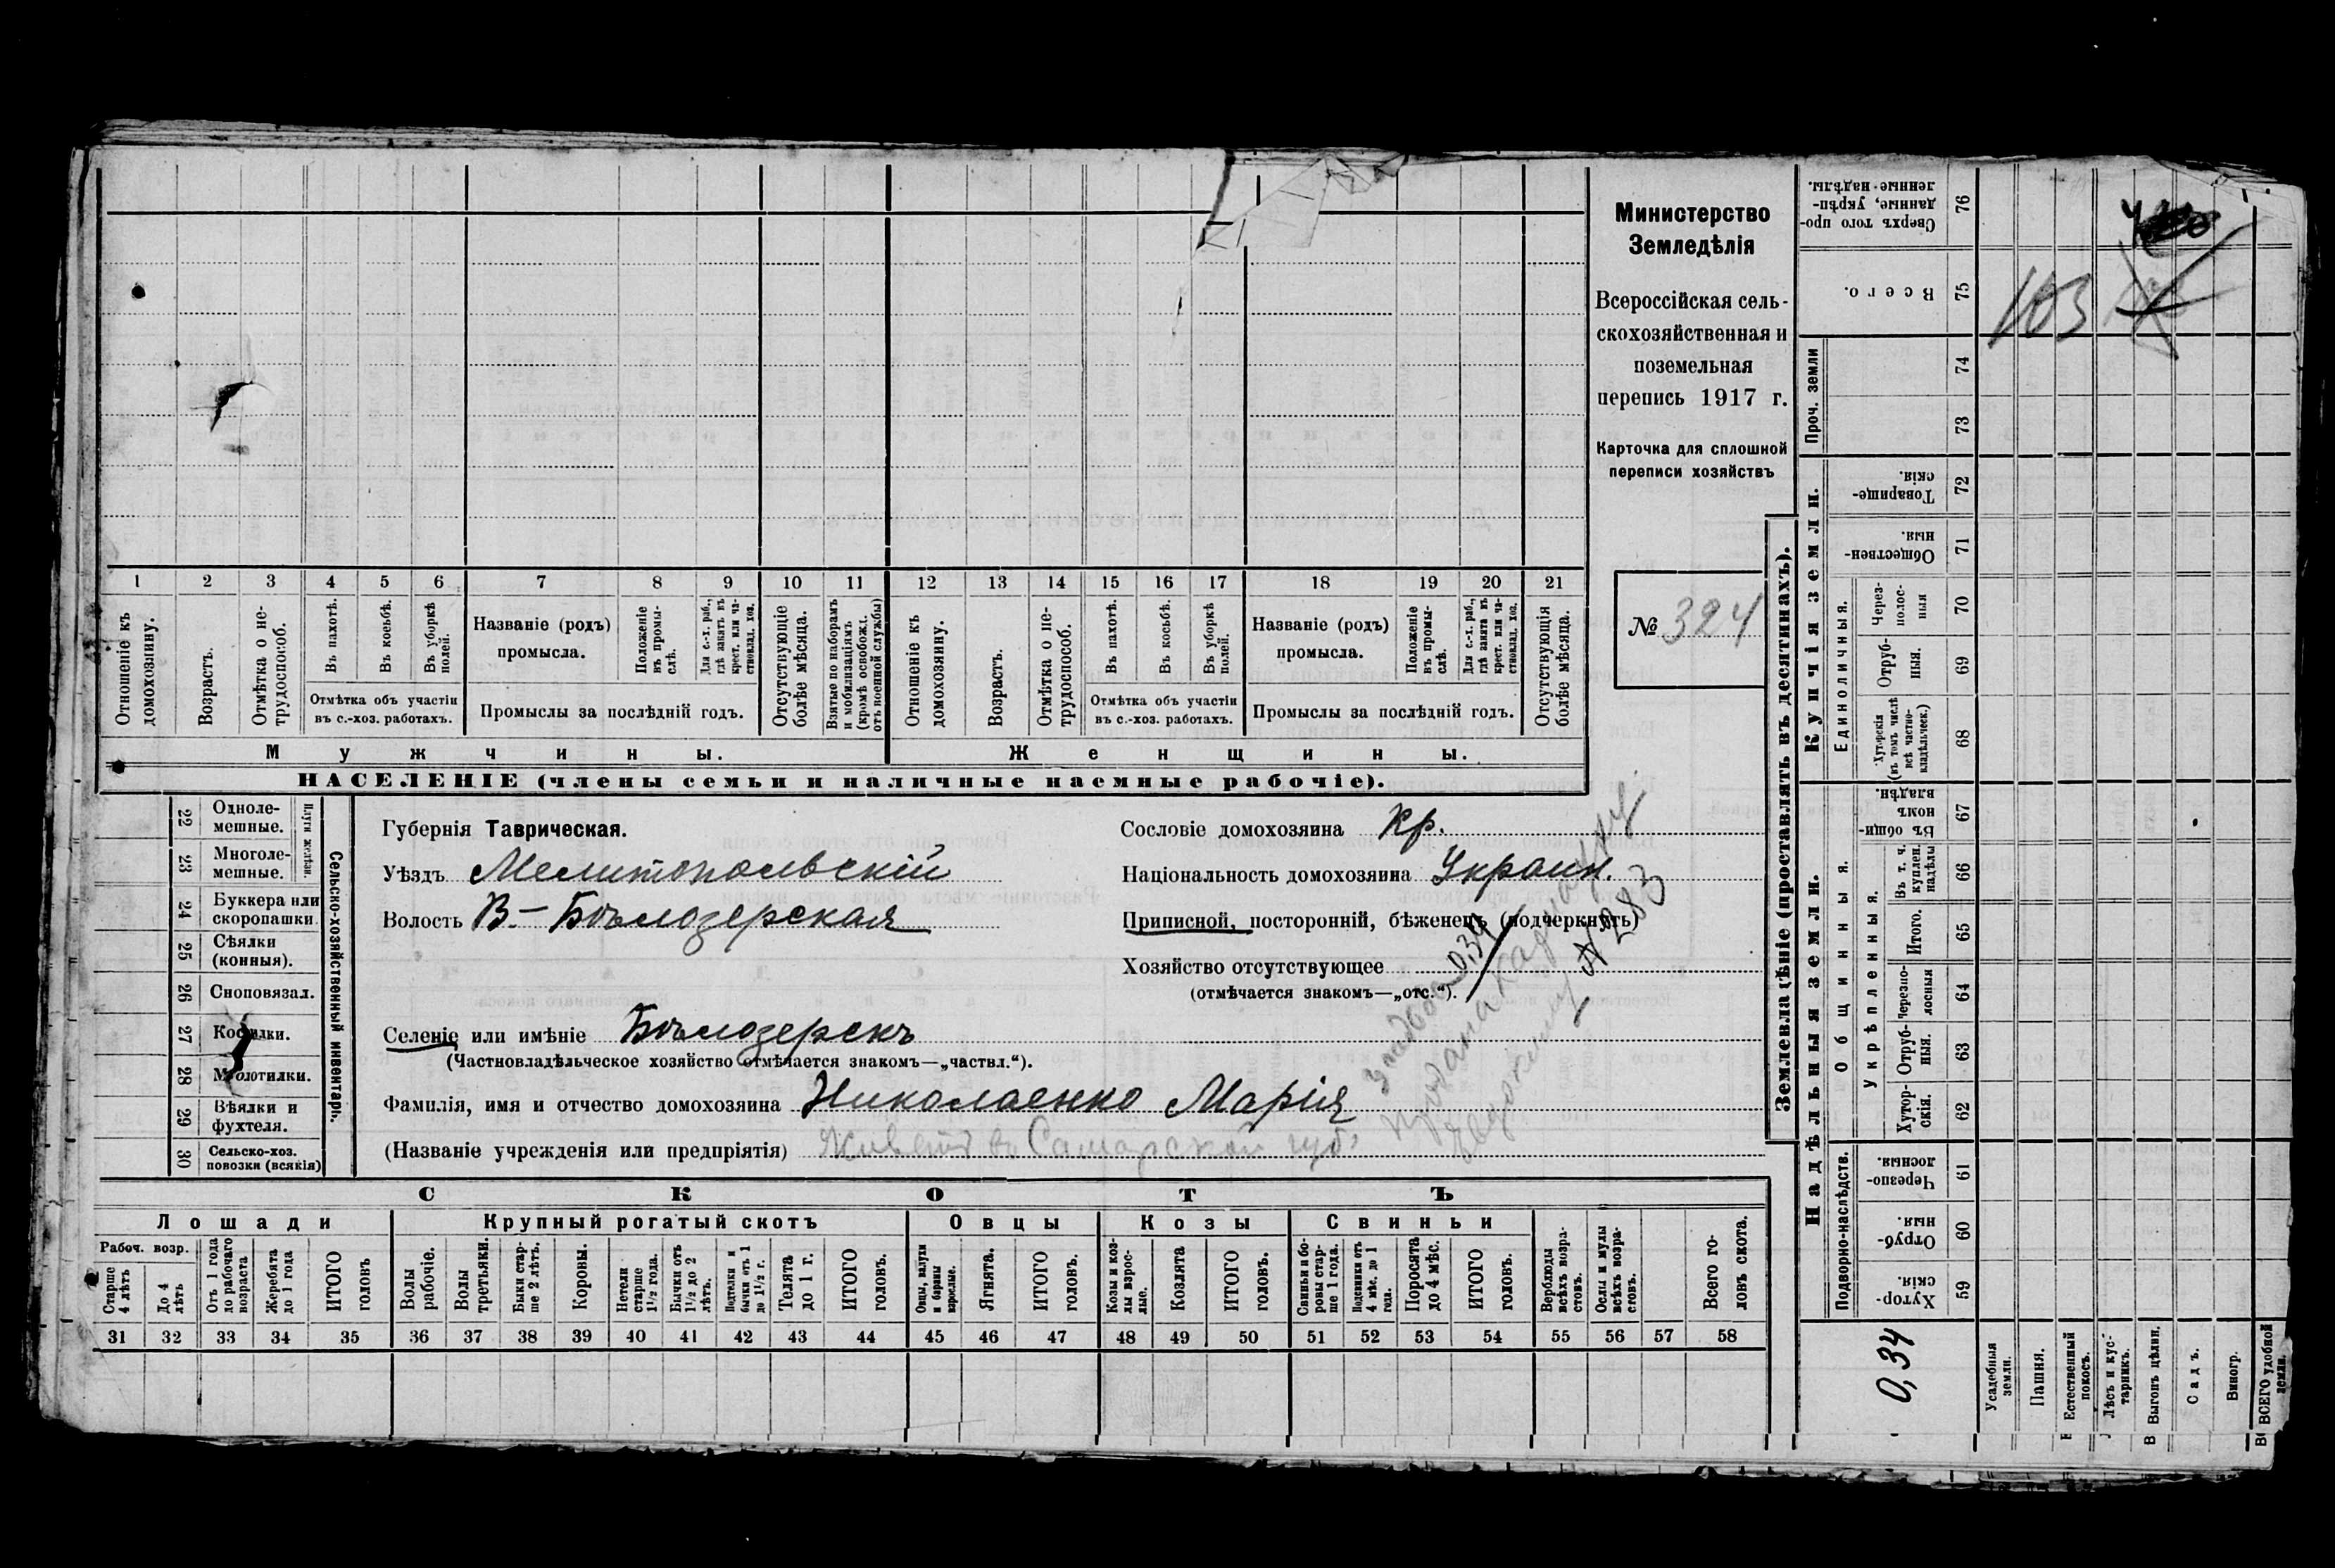 Министерство
Земледѣлія
Всероссійская сель-
скохозяйственная и
поземельная
перепись 1917 г.
Карточка для сплошной
переписи хозяйствъ
№ 324
1 2 3 4 5 6 7 8 9 10 11 12 13 14 15 16 17 18 19 20 21
Отношеніе къ домохозяину.
Возрастъ.
Отмѣтка о не-трудоспособ.
Въ пахотѣ.
Въ косьбѣ.
Въ уборкѣ полей.
Отмѣтка объ участіи
въ с.-хоз. работахъ.
Названіе (родъ)
промысла.
Положеніе въ промы-слѣ.
Для с.-х. раб., гдѣ занятъ въ крест. или ча-стновлад. хоз.
Промыслы за послѣдній годъ.
Отсутствующіе болѣе мѣсяца.
Взятые по наборамъ и мобилизаціямъ (кромѣ освобожд. отъ военной службы)
Отношеніе къ домохозяину.
Возрастъ.
Отмѣтка о не-трудоспособ.
Въ пахотѣ.
Въ косьбѣ.
Въ уборкѣ полей.
Отмѣтка объ участіи
въ с.-хоз. работахъ.
Названіе (родъ)
промысла.
Положеніе въ промы-слѣ.
Для с.-х. раб., гдѣ занята въ крест. или ча-стновлад. хоз.
Промыслы за послѣдній годъ.
Отсутствующія болѣе мѣсяца.
Мужчины. Женщины.
НАСЕЛЕНІЕ (члены семьи и наличные наемные рабочіе).
22 Одноле-мешные.
23 Многоле-мешные.
Плуги желѣзн.
24 Буккера или скоропашки.
25 Сѣялки (конныя).
26 Сноповязал.
27 Косилки.
28 Молотилки.
29 Вѣялки и фухтеля.
30 Сельско-хоз. повозки (всякія)
Сельско-хозяйственный инвентарь.
Губернія Таврическая.
Уѣздъ Мелитопольскій
Волость В-Бѣлозерская
Селеніе или имѣніе Бѣлозерскъ
(Частновладѣльческое хозяйство отмѣчается знакомъ—„частвл.“).
Фамилія, имя и отчество домохозяина Николаенко Марія
(Названіе учрежденія или предпріятія) Живетъ въ Самарской губ.
Сословіе домохозяина Кр.
Національность домохозяина Украин.
Приписной, посторонній, бѣженецъ (подчеркнуть)
Хозяйство отсутствующее
(отмѣчается знакомъ—„отс.“).
0,34
№ 283
СКОТЪ
Лошади Крупный рогатый скотъ Овцы Козы Свиньи
Рабоч. возр.
Старше 4 лѣтъ
До 4 лѣтъ
Отъ 1 года до рабочаго возраста
Жеребята до 1 года
ИТОГО головъ
Волы рабочіе.
Волы третьяки.
Быки стар-ше 2 лѣтъ.
Коровы.
Нетели старше 1½ года.
Бычки отъ 1½ до 2 лѣтъ.
Подтелки и бычки отъ 1 до 1½ г.
Телята до 1 г.
ИТОГО головъ.
Овцы, валухи и бараны взрослые.
Ягнята.
ИТОГО головъ.
Козы и коз-лы взрос-лые.
Козлята
ИТОГО головъ.
Свиньи и бо-ровы стар-ше 1 года.
Подсвинки отъ 4 мѣс. до 1 года.
Поросята до 4 мѣс.
ИТОГО головъ.
Верблюды всѣхъ возра-стовъ.
Ослы и мулы всѣхъ возра-стовъ.
Всего го-ловъ скота.
31 32 33 34 35 36 37 38 39 40 41 42 43 44 45 46 47 48 49 50 51 52 53 54 55 56 57 58
Землевладѣніе (проставлять въ десятинахъ).
Купчія земли.
Надѣльныя земли.
Сверхъ того про-данные, укрѣп-ленные надѣлы. 76
Всего. 75
103
Проч. земли
74
73
Товарище-скія 72
Обществен-ныя. 71
Единоличныя.
Через-полос-ныя 70
Отруб-ныя. 69
Хуторскія (въ томъ числѣ всѣ частно-владѣльческ.) 68
Общинныя.
Въ общин-номъ владѣн. 67
Укрѣпленныя.
Въ т. ч. куплен. надѣлы 66
Итого. 65
Черезпо-лосныя 64
Отруб-ныя. 63
Хутор-скія. 62
Подворно-наслѣдств.
Черезпо-лосныя. 61
Отруб-ныя. 60
Хутор-скія. 59
0,34
Усадебныя земли.
Пашня.
Естественный покосъ.
Лѣсъ и кус-тарникъ.
Выгонъ цѣлин.
Садъ.
Виногр.
ВСЕГО удобной земли.